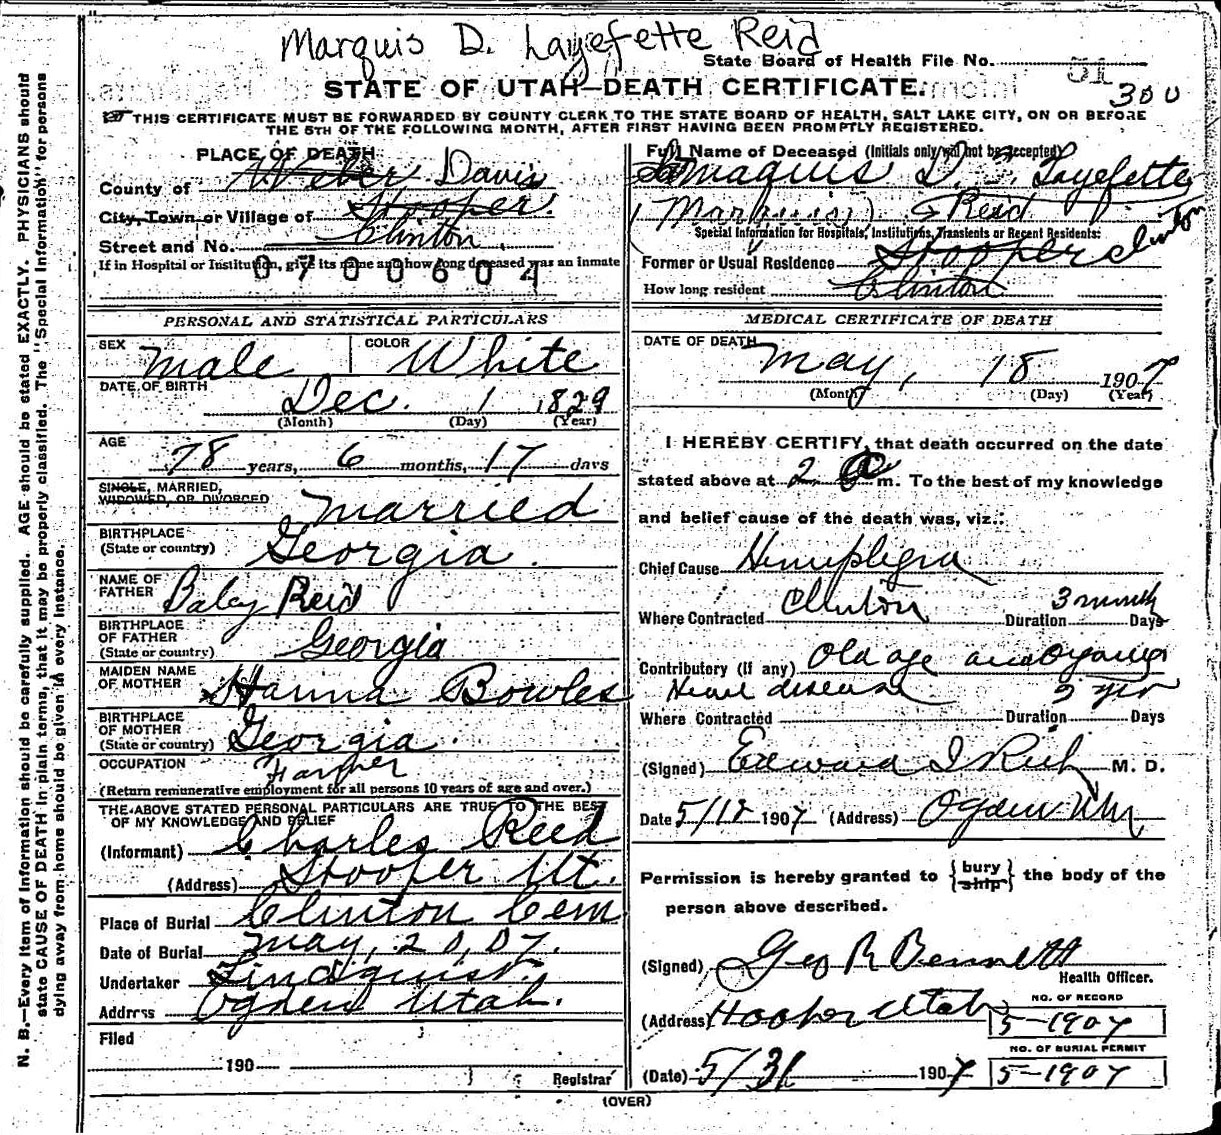 Marquis D. Layefette Reid
State Board of Health File No. 51
300
STATE OF UTAH—DEATH CERTIFICATE.
THIS CERTIFICATE MUST BE FORWARDED BY COUNTY CLERK TO THE STATE BOARD OF HEALTH, SALT LAKE CITY, ON OR BEFORE
THE 5TH OF THE FOLLOWING MONTH, AFTER FIRST HAVING BEEN PROMPTLY REGISTERED.
N. B.—Every item of information should be carefully supplied. AGE should be stated EXACTLY. PHYSICIANS should
state CAUSE OF DEATH in plain terms, that it may be properly classified. The "Special Information" for persons
dying away from home should be given in every instance.
PLACE OF DEATH
County of Weber Davis
City, Town or Village of Hooper.
Street and No. Clinton
If in Hospital or Institution, give its name and how long deceased was an inmate
0700604
PERSONAL AND STATISTICAL PARTICULARS
SEX Male COLOR White
DATE OF BIRTH Dec. 1 1829
(Month) (Day) (Year)
AGE
78 years, 6 months, 17 days
SINGLE, MARRIED,
WIDOWED, OR DIVORCED Married
BIRTHPLACE
(State or country) Georgia.
NAME OF
FATHER Baley Reid
BIRTHPLACE
OF FATHER
(State or country) Georgia
MAIDEN NAME
OF MOTHER Hanna Bowles
BIRTHPLACE
OF MOTHER
(State or country) Georgia.
OCCUPATION Farmer
(Return remunerative employment for all persons 10 years of age and over.)
THE ABOVE STATED PERSONAL PARTICULARS ARE TRUE TO THE BEST
OF MY KNOWLEDGE AND BELIEF
(Informant) Charles Reed
(Address) Hooper Ut.
Place of Burial Clinton Cem
Date of Burial May, 20, 07.
Undertaker Lindquist.
Address Ogden Utah.
Filed
190
Registrar
Full Name of Deceased (Initials only will not be accepted)
Maquis D. Layefette
(Marquis) Reid
Special Information for Hospitals, Institutions, Transients or Recent Residents:
Former or Usual Residence Hooper Clinton
How long resident Clinton
MEDICAL CERTIFICATE OF DEATH
DATE OF DEATH May, 18 1907
(Month) (Day) (Year)
I HEREBY CERTIFY, that death occurred on the date
stated above at 2 a m. To the best of my knowledge
and belief cause of the death was, viz.:
Chief Cause Hemiplegia
Where Contracted Clinton Duration 3 month Days
Contributory (if any) Old age and organic
Heart disease 5 yrs
Where Contracted Duration Days
(Signed) Edward I Rich M. D.
Date 5/18 1907 (Address) Ogden Utah
Permission is hereby granted to {bury ship} the body of the
person above described.
(Signed) Geo R Bennett
Health Officer.
(Address) Hooper Utah
NO. OF RECORD
5-1907
NO. OF BURIAL PERMIT
(Date) 5/31 1907 5-1907
(OVER)